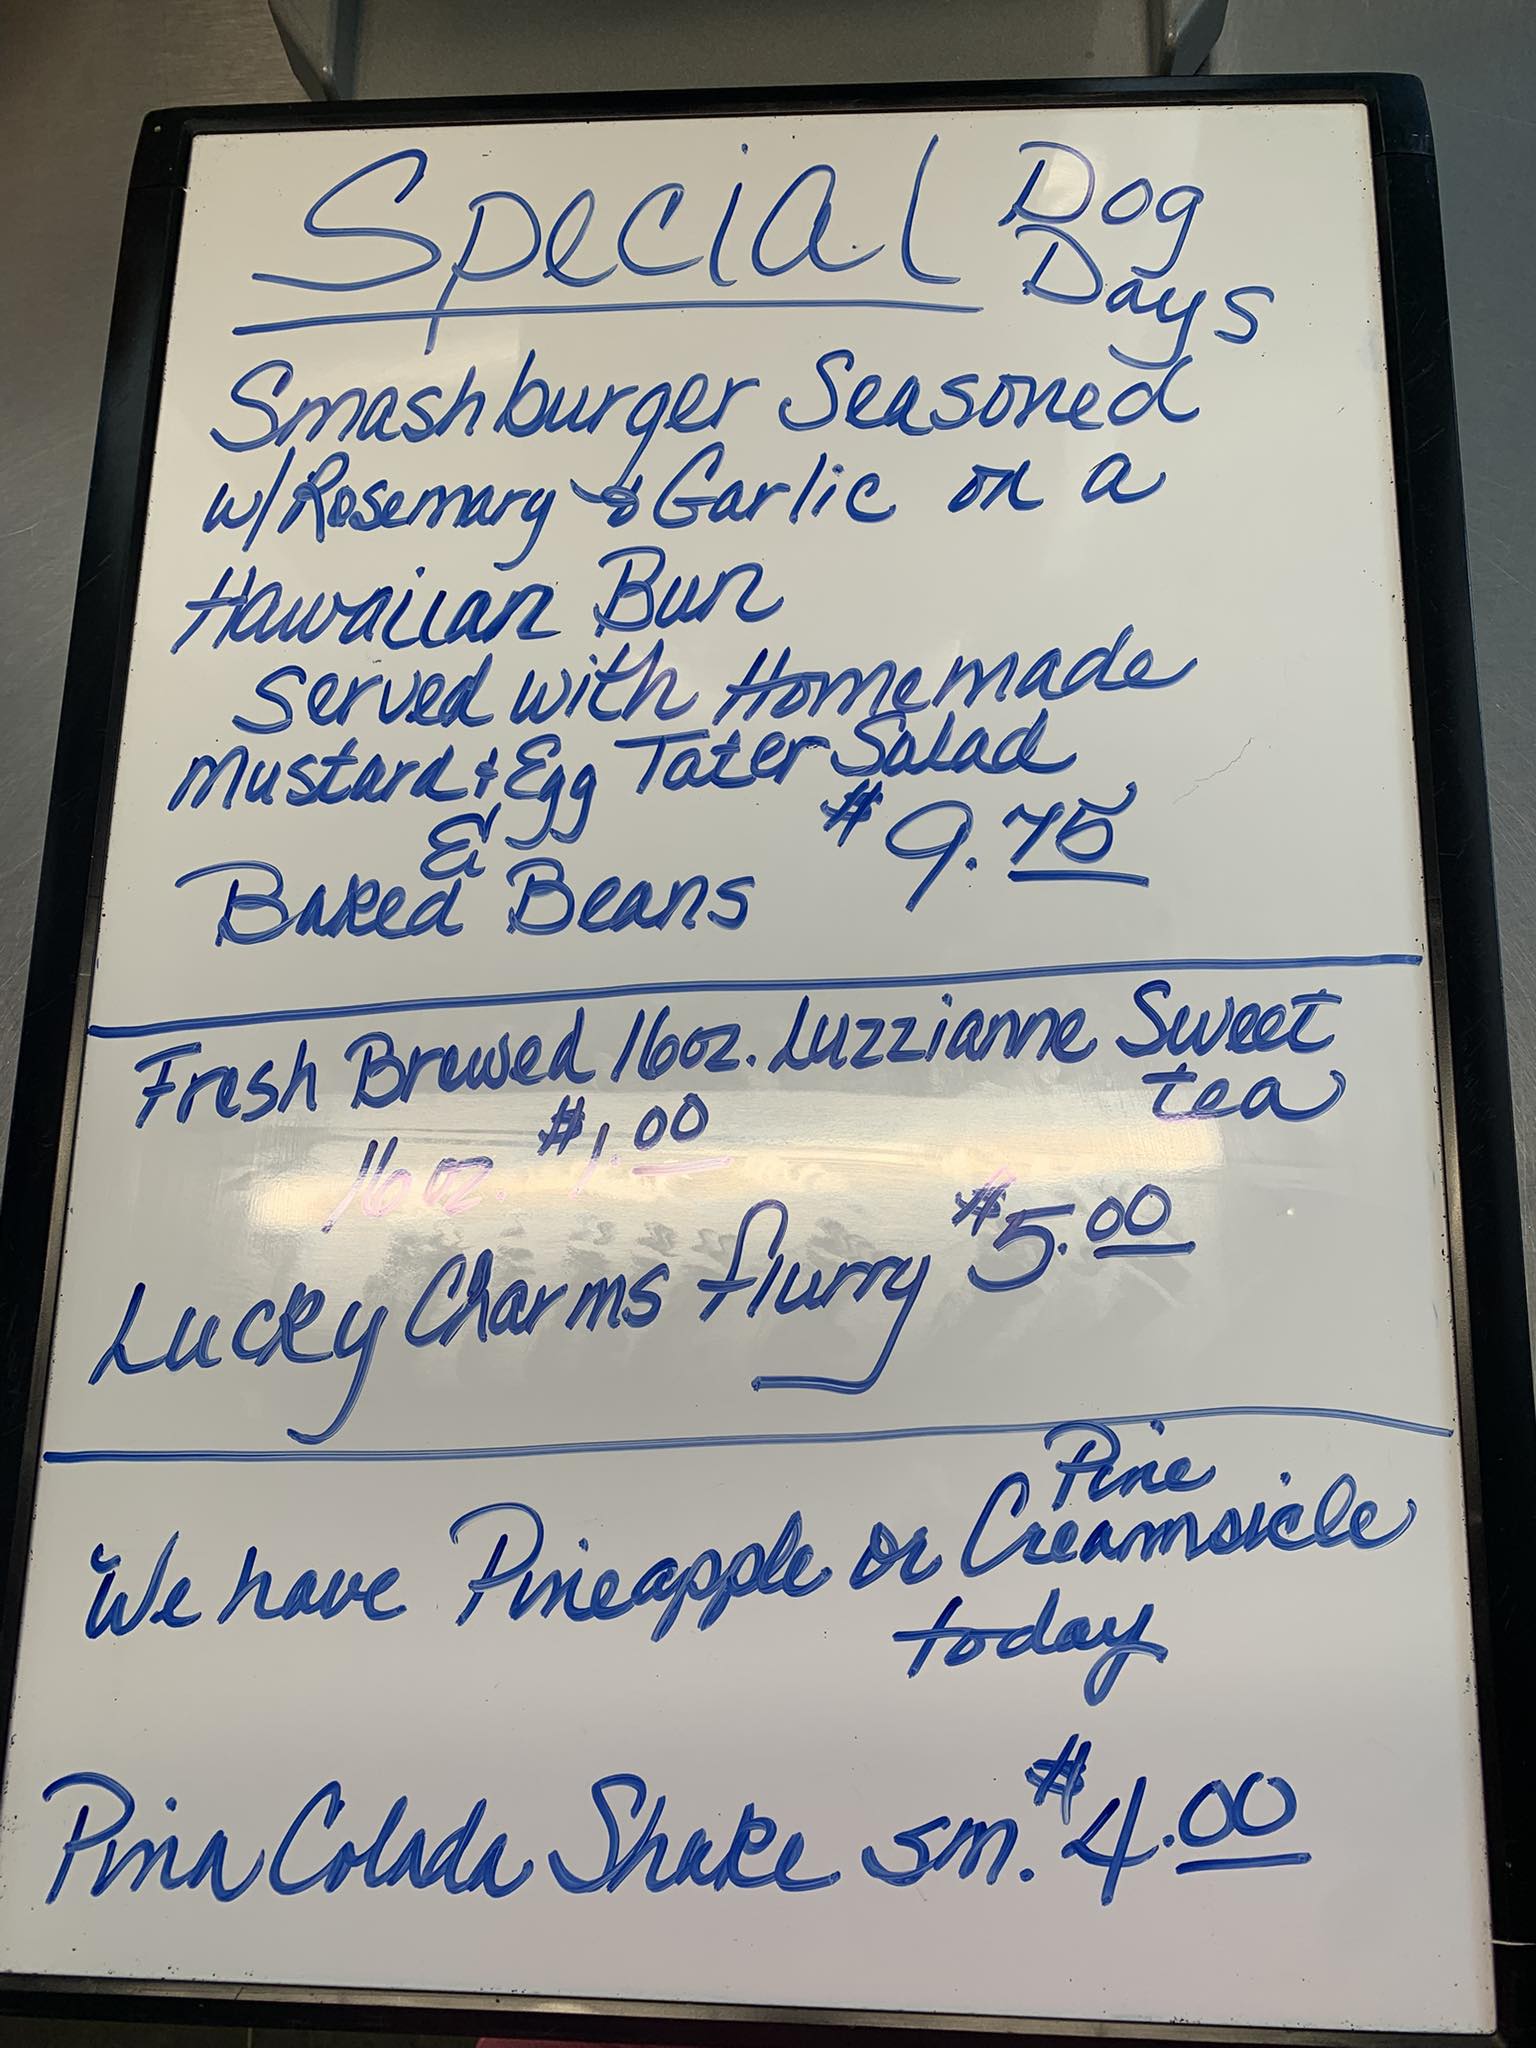 Special Dog Days
Smashburger Seasoned
w/Rosemary & Garlic on a
Hawaiian Bun
Served with Homemade
Mustard & Egg Tater Salad
& $9.75
Baked Beans
Fresh Brewed 16oz. Luzzianne Sweet
tea
16oz. $1.00
Lucky Charms flurry $5.00
Pine
We have Pineapple or Creamsicle
today
Pina Colada Shake sm. $4.00